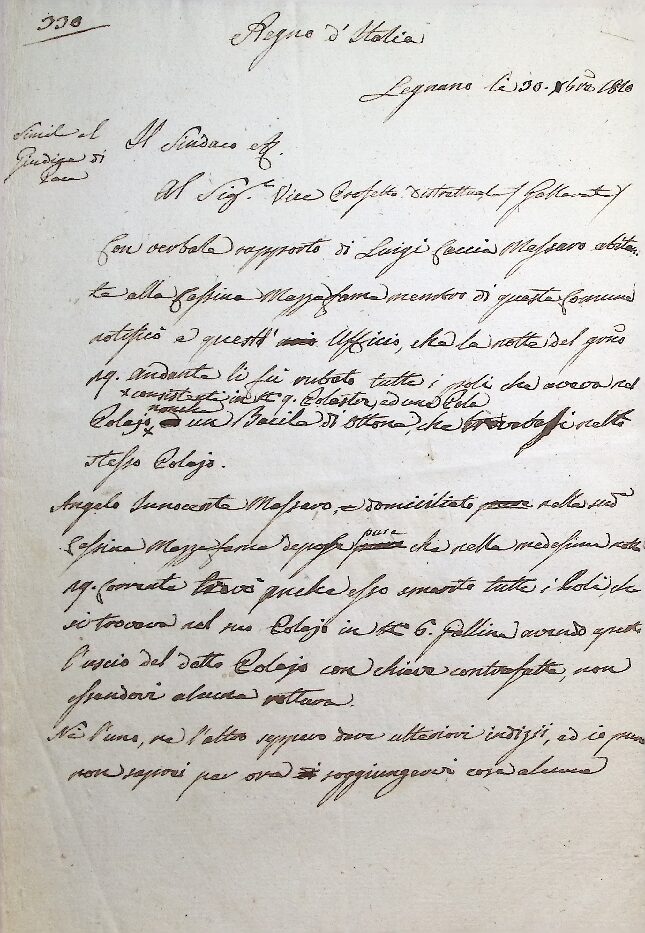 330
Regno d'Italia
Legnano li 30. Xbre 1810
Simil al
Giudice di
Pace
Il Sindaco
Al Sig.r Vice Prefetto Distrettuale / Gallarate /
Con verbale rapporto di Luigi Caccia Massaro abitan-
te alla Cassina Mazzafame membro di questa Comune
notificò a questo Ufficio, che la notte del giorno
29. andante li fù rubato tutti i poli che aveva nel
x consistenti in 9. Polastri, ed una Pola
Polajo, x nonche un Bacile di ottone, che trovavasi nello
stesso Polajo.
Angelo Innocente Massaro, domiciliato nella suda
Cassina Mazzafame depose pure che nella medesima notte
29. corrente trovò pur esso smarito tutti i Poli che
si trovava nel suo Polajo in 6. Galline avendo aperto
l'uscio del detto Polajo con chiave contrafatta, non
essendovi alcuna rottura.
Nè l'uno, ne l'altro seppero dare ulteriori indizii, ed io pure
non saprei per ora soggiungervi cosa alcuna